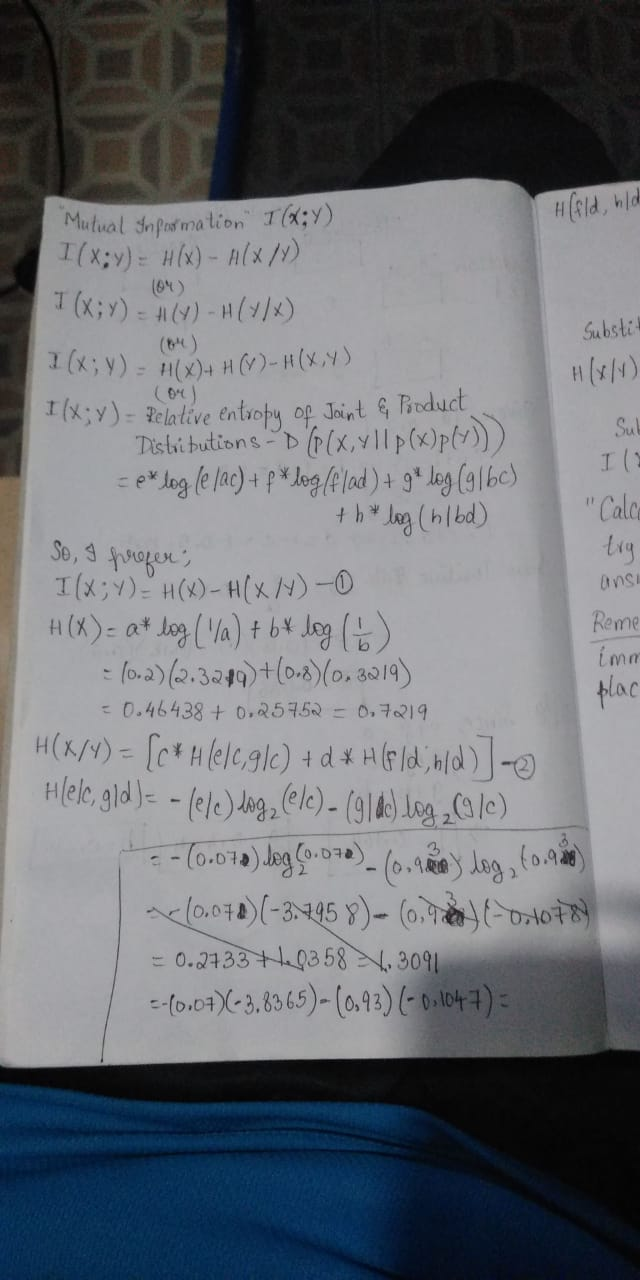 "Mutual Information" I(X;Y)
I(X;Y) = H(X) - H(X/Y)
(or)
I(X;Y) = H(Y) - H(Y/X)
(or)
I(X;Y) = H(X) + H(Y) - H(X,Y)
(or)
I(X;Y) = Relative entropy of Joint & Product
Distributions - D (P(X,Y||p(x)p(y)))
= e* log(e/ac) + f* log(f/ad) + g* log(g/bc)
+ h* log(h/bd)
So, I prefer;
I(X;Y) = H(X) - H(X/Y) -①
H(X) = a* log(1/a) + b* log(1/b)
= (0.2)(2.3219)+(0.8)(0.3219)
= 0.46438 + 0.25752 = 0.7219
H(X/Y) = [c* H(e/c,g/c) + d* H(f/d,h/d)] -②
H(e/c, g/d) = - (e/c) log₂(e/c) - (g/c) log₂(g/c)
= -(0.07) log₂(0.07) - (0.93) log₂(0.93)
= -(0.07)(-3.7958) - (0.93)(-0.1078)
= 0.2733 + 1.0358 = 1.3091
= -(0.07)(-3.8365) - (0.93)(-0.1047) =
H(f/d, h/d
Substit
H(X/Y)
Sub
I(
"Calc
try
ans
Reme
imm
plac